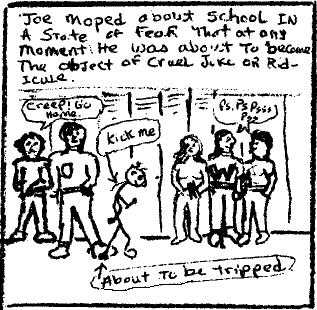 Joe moped about School IN
A State of Fear That at any
Moment He was about To become
The object of Cruel Joke or Rid-
icule.
Creep! Go
Home.
Kick me
Ps. Ps Psss
Pss
W
About To be tripped